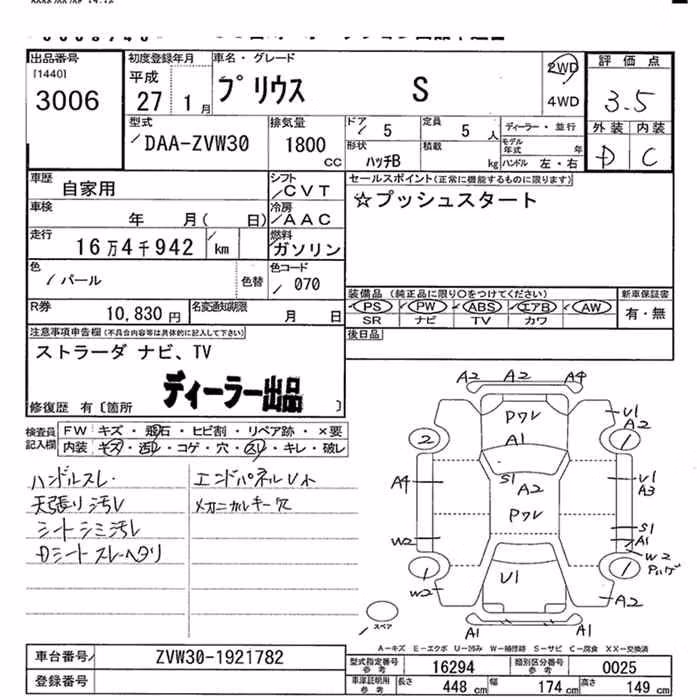 出品番号
[1440]
3006
初度登録年月
平成
27 1月
車名・グレード
プリウス S
2WD
4WD
評価点
3.5
外装 内装
D C
型式
DAA-ZVW30
排気量
1800 CC
ドア 5
形状 ハッチB
定員 5人
積載 kg
ディーラー・並行
モデル年式 年
ハンドル 左・右
車歴 自家用
シフト CVT
セールスポイント(正常に機能するものに限ります)
☆プッシュスタート
車検 年 月( 日)
冷房 AAC
走行 16万4千942 km
燃料 ガソリン
色 パール 色替
色コード 070
R券 10,830円
名変通知期限 月 日
装備品(純正品に限り○をつけてください)
PS PW ABS エアB AW
SR ナビ TV カワ
新車保証書
有・無
後日品
注意事項申告欄(不具合内容等は具体的に記入して下さい)
ストラーダ ナビ、TV
ディーラー出品
修復歴 有〔箇所 〕
検査員記入欄
FW キズ・飛石・ヒビ割・リペア跡・×要
内装 キズ・汚れ・コゲ・穴・スレ・キレ・破レ
ハンドルスレ・
天張り汚レ
シートシミ汚レ
Dシートスレ・ヘタリ
エンドパネルUト
メカニカルキー欠
A2 A2 A4
Pワレ
U1
A2
2
A1
1
S1
A2
A4
U1
A3
Pワレ
S1
A1
W2
W2
Pハゲ
1
U1
1
W2
A2
A1 A1
スペア
A-キズ E-エクボ U-凹み W-補修跡 S-サビ C-腐食 XX-交換済
車台番号 ZVW30-1921782
登録番号
型式指定番号 参考 16294
類別区分番号 参考 0025
車庫証明用 参考 長さ 448cm 幅 174cm 高さ 149cm